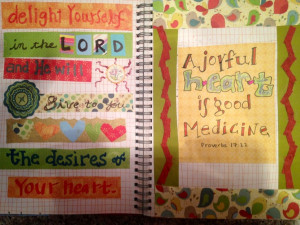 delight Yourself
in the LORD
and He will
Give to you
the desires of
Your heart.
A joyful
heart
is good
Medicine
Proverbs 17:22